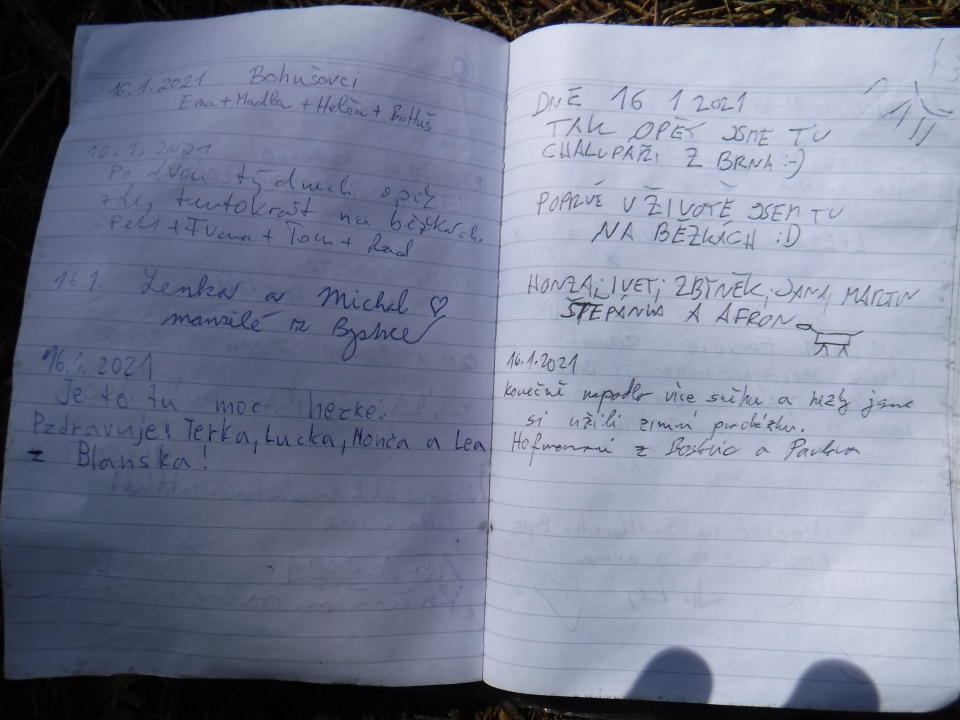 16.1.2021 Bohušovci
Ema + Madla + Helča + Bohuš
16.1.2021
Po dvou týdnech opět
zde, tentokrát na běžkách.
Petr + Ivana + Tom + Rad
16.1. Lenka a Michal ♡
manželé z
16.1.2021
Je to tu moc hezké.
Pzdravuje! Terka, Lucka, Monča a Lea
z Blanska!
DNE 16 1 2021
TAK OPĚT JSME TU
CHALUPÁŘI Z BRNA :-)
POPRVÉ V ŽIVOTĚ JSEM TU
NA BĚŽKÁCH :D
HONZA, IVET, ZBYNĚK, JANA, MARTIN
ŠTEPÁNKA A AFRON
16.1.2021
Konečně napadlo více sněhu a hezky jsme
si užili zimní procházku.
Hofmanni z Boskovic a